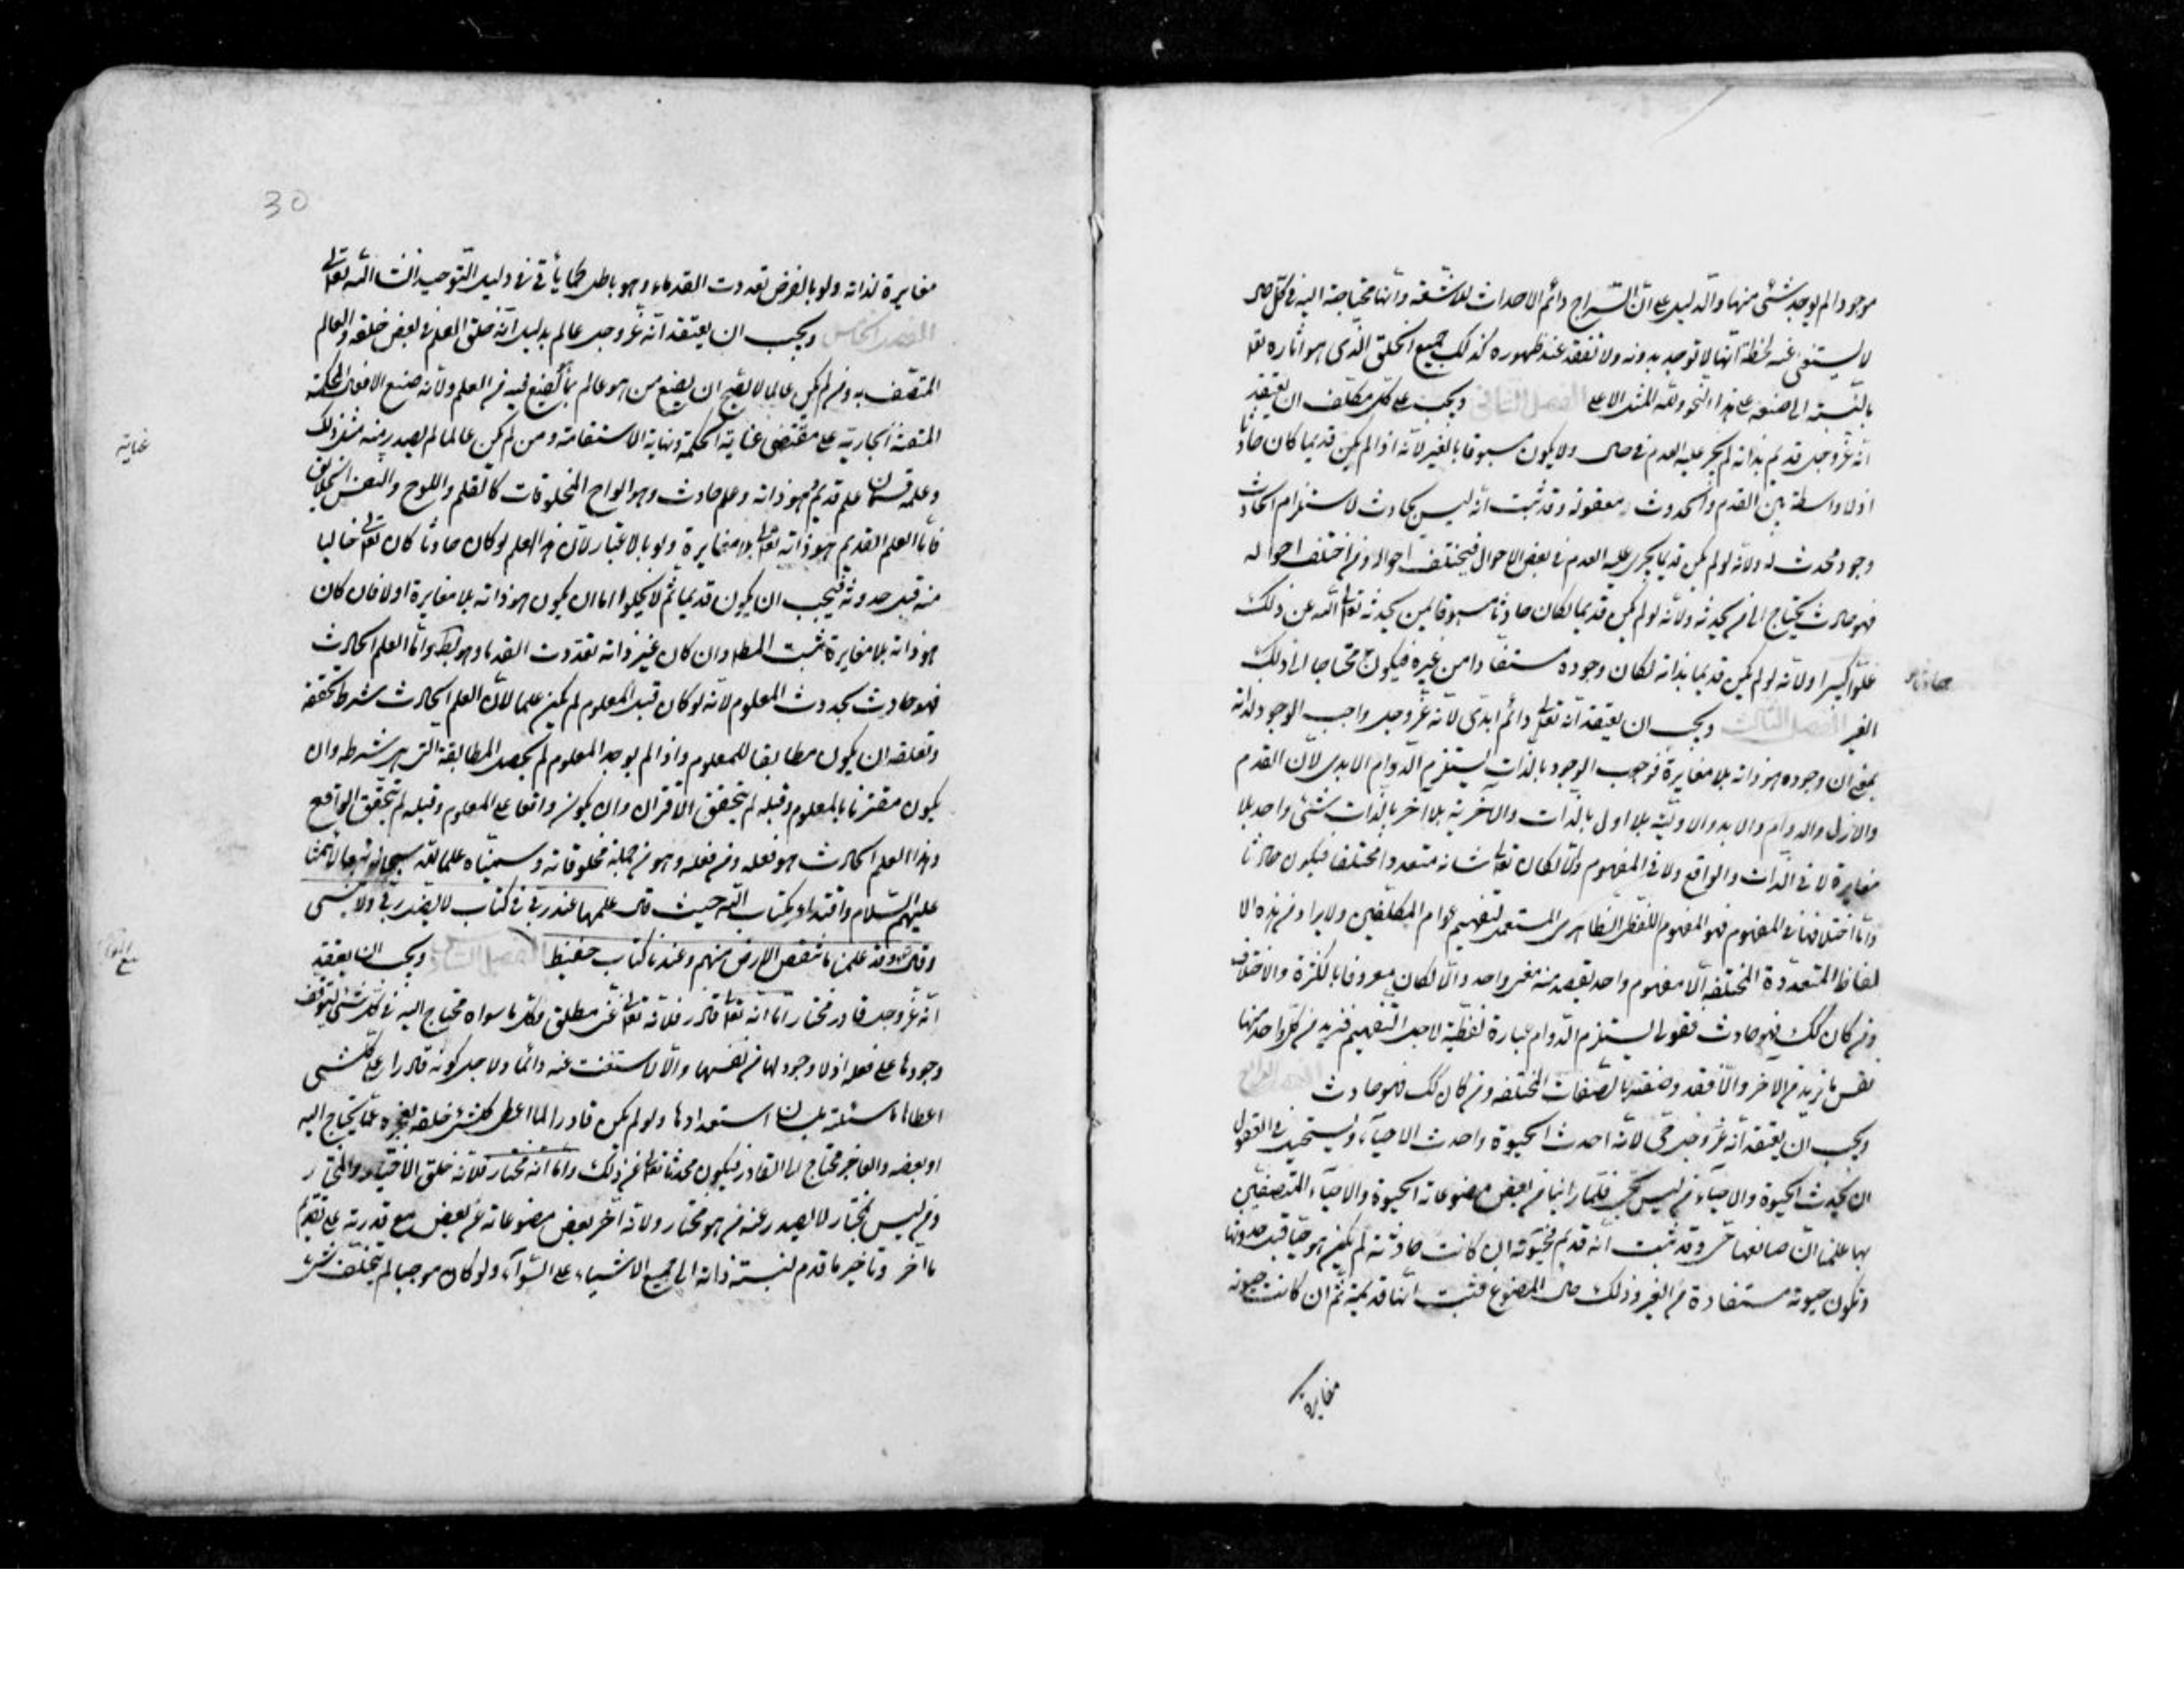 موجودا لم يوجد شئ منها والدليل على ان السراج دائم الاحداث للاشعة وانها محتاجة اليه فى كل حال
لا يستغنى عنه لحظة انها لا توجد بدونه ولا تفقد عند ظهوره كذلك جميع الخلق الذى هو اثاره تعا
بالنسبة الى صنعه على هذا النحو ولله المثل الاعلى الفصل الثانى ويجب على كل مكلف ان يعتقد
انه عز وجل قديم بذاته لم يجر عليه العدم فى حال ولا يكون مسبوقا بالغير لانه اذا لم يكن قديما كان حادثا
اذ لا واسطة بين القدم والحدوث معقولة وقد ثبت انه ليس بحادث لاستلزام الحادث
وجود محدث له ولانه لو لم يكن قديما يجرى عليه العدم فى بعض الاحوال فيختلف احواله ومن اختلف احواله
فهو حادث يحتاج الى من يحدثه ولانه لو لم يكن قديما لكان حادثا مسبوقا بمن يحدثه تعالى الله عن ذلك
علوا كبيرا ولانه لو لم يكن قديما بذاته لكان وجوده مستفادا من غيره فيكون محتاجا الى ذلك
الغير الفصل الثالث ويجب ان يعتقد انه تعالى دائم ابدى لانه عز وجل واجب الوجود لذاته
بمعنى ان وجوده هو ذاته بلا مغايرة فوجوب الوجود بالذات يستلزم الدوام الابدى لان القدم
والازل والدوام والابد والاولية بلا اول بالذات والاخرية بلا اخر بالذات شئ واحد بلا
مغايرة لا فى الذات والواقع ولا فى المفهوم والا لكان تعالى شانه متعددا مختلفا فيكون حادثا
واما اختلافها فى المفهوم فهو المفهوم اللفظى الظاهرى المستعمل لتفهيم عوام المكلفين ولا يراد من هذه الا
لفاظ المتعددة المختلفة الا مفهوم واحد يقصد منه معنى واحد والا لكان معروفا بالكثرة والاختلاف
ومن كان كك فهو حادث فقولنا يستلزم الدوام عبارة لفظية لاجل التفهيم فنريد من كل واحد منها
نفس ما نريد من الاخر والا فقد وصفته بالصفات المختلفة ومن كان كك فهو حادث الفصل الرابع
ويجب ان يعتقد انه عز وجل حى لانه احدث الحيوة واحدث الاحياء ويستحيل فى العقول
ان يحدث الحيوة والاحياء من ليس بحى فلما راينا من بعض مصنوعاته الحيوة والاحياء المتصفين
بها علمنا ان صانعها حى وقد ثبت انه قديم فحيوته ان كانت حادثة لم يكن هو حيا قبل حدوثها
وتكون حيوته مستفادة من الغير وذلك حال المصنوع فثبت انها قديمة ثم ان كانت حيوته
مغايرة
30
مغايرة لذاته ولو بالفرض تعددت القدماء وهو باطل كما يأتى فى دليل التوحيد انشاء الله تعالى
الفصل الخامس ويجب ان يعتقد انه عز وجل عالم بدليل انه خلق العلم فى بعض خلقه والعالم
المتصف به ومن لم يكن عالما لا يصح ان يصنع من هو عالم بما يصنع فيه من العلم ولانه صنع الافعال المحكمة
المتقنة الجارية على مقتضى غاية الحكمة ونهاية الاستقامة ومن لم يكن عالما لم يصدر منه مثل ذلك
غاية
وعلمه قسمان علم قديم وهو ذاته وعلم حادث وهو الواح المخلوقات كالقلم واللوح والنفس الخلائق
فاما العلم القديم فهو ذاته تعالى بلا مغايرة ولو بالاعتبار لان هذا العلم لو كان حادثا كان تعالى خاليا
منه قبل حدوثه فيجب ان يكون قديما ثم لا يخلوا اما ان يكون هو ذاته بلا مغايرة اولا فان كان
هو ذاته بلا مغايرة ثبت المط وان كان غير ذاته تعددت القدماء وهو بط واما العلم الحادث
فهو حادث بحدوث المعلوم لانه لو كان قبل المعلوم لم يكن علما لان العلم الحادث شرط تحققه
وتعلقه ان يكون مطابقا للمعلوم واذا لم يوجد المعلوم لم يحصل المطابقة التى هى شرطه وان
يكون مقترنا بالمعلوم وقبله لم يتحقق الاقتران وان يكون واقعا على المعلوم وقبله لم يتحقق الواقع
وهذا العلم الحادث هو فعله ومن فعله وهو من جملة مخلوقاته وسميناه علما لله سبحانه تبعا لائمتنا
عليهم السلام واقتداء بكتاب الله حيث قال علمها عند ربى فى كتاب لا يضل ربى ولا ينسى
وقال وقد علمنا ما تنقص الارض منهم وعندنا كتاب حفيظ الفصل السادس ويجب ان يعتقد
انه عز وجل قادر مختار اما انه تعالى قادر فلانه تعالى غنى مطلق وكل ما سواه محتاج اليه فى كل شئ لتوقف
وجودها على فعله اذ لا وجود لها من نفسها والا لاستغنت عنه دائما ولاجل كونه قادرا على كلشئ
اعطاها ما سئلته بلسان استعدادها ولو لم يكن قادرا لما اعطى كلشئ خلقه لعجزه عما يحتاج اليه
او بعضه والعاجز محتاج الى القادر فيكون محدثا تعالى عن ذلك واما انه مختار فلانه خلق الاختيار والمختار
ومن ليس بمختار لا يصدر عنه من هو مختار ولانه اخر بعض مصنوعاته عن بعض مع قدرته على تقديم
ما اخر وتاخير ما قدم لنسبة ذاته الى جميع الاشياء على السواء ولو كان موجبا لم يتخلف شئ